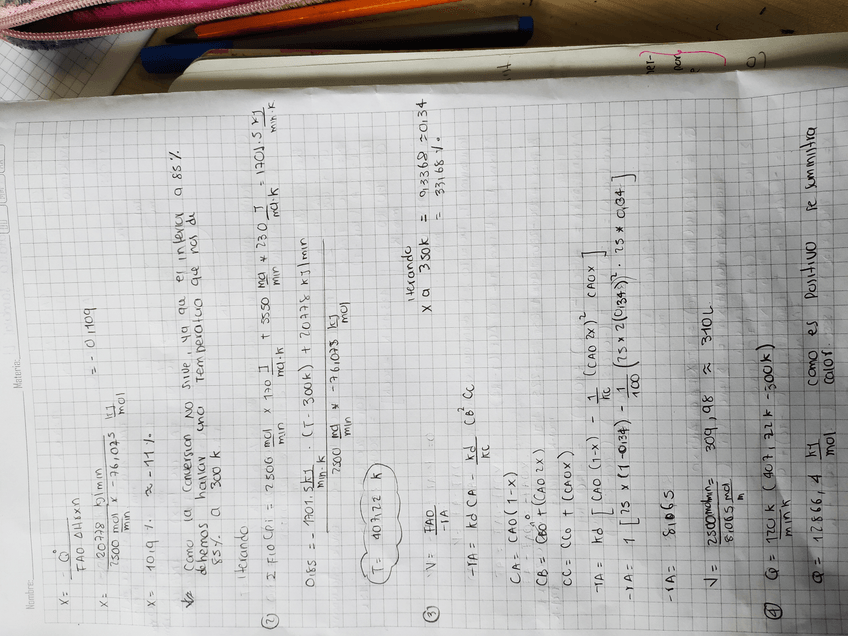 Nombre
Materia:
X = - Q° / FAO ΔHRxn
X = 20778 kJ/min / 2500 mol/min x -76,075 kJ/mol = -0,109
X = 10,9 % ≈ -11 %
Como la conversion NO sirve, ya que es inferior a 85 %
debemos hallar una temperatura que nos de
85 % a 300 K
iterando
② Σ Fio Cpi = 2500 mol/min x 170 J/mol·K + 5550 mol/min * 230 J/mol·K = 1701.5 kJ/min·K
0,85 = - 1701.5 kJ/min·K · (T - 300K) + 20778 kJ/min / 2500 mol/min * -76,075 kJ/mol
T = 407,22 K
iterando
X a 350K = 0,3368 ≈ 0,34
= 33,68 %
③ V = FAO / -rA
-rA = kd CA - kd/kc CB² CC
CA = CAO (1-x)
CB = CBO + (CAO 2x)
CC = CCO + (CAOX)
-rA = kd [ CAO (1-x) - 1/kc (CAO 2x)² CAOX ]
-rA = 1 [ 25 x (1-0,34) - 1/100 (25 x 2(0,34))² · 25 * 0,34 ]
-rA = 8,065
V = 2500 mol/min / 8,065 mol = 309,98 ≈ 310 L
④ Q = 120 K / min K (407,22 K - 300 K)
Q = 12866,4 kJ/mol Como es positivo se suministra
calor.